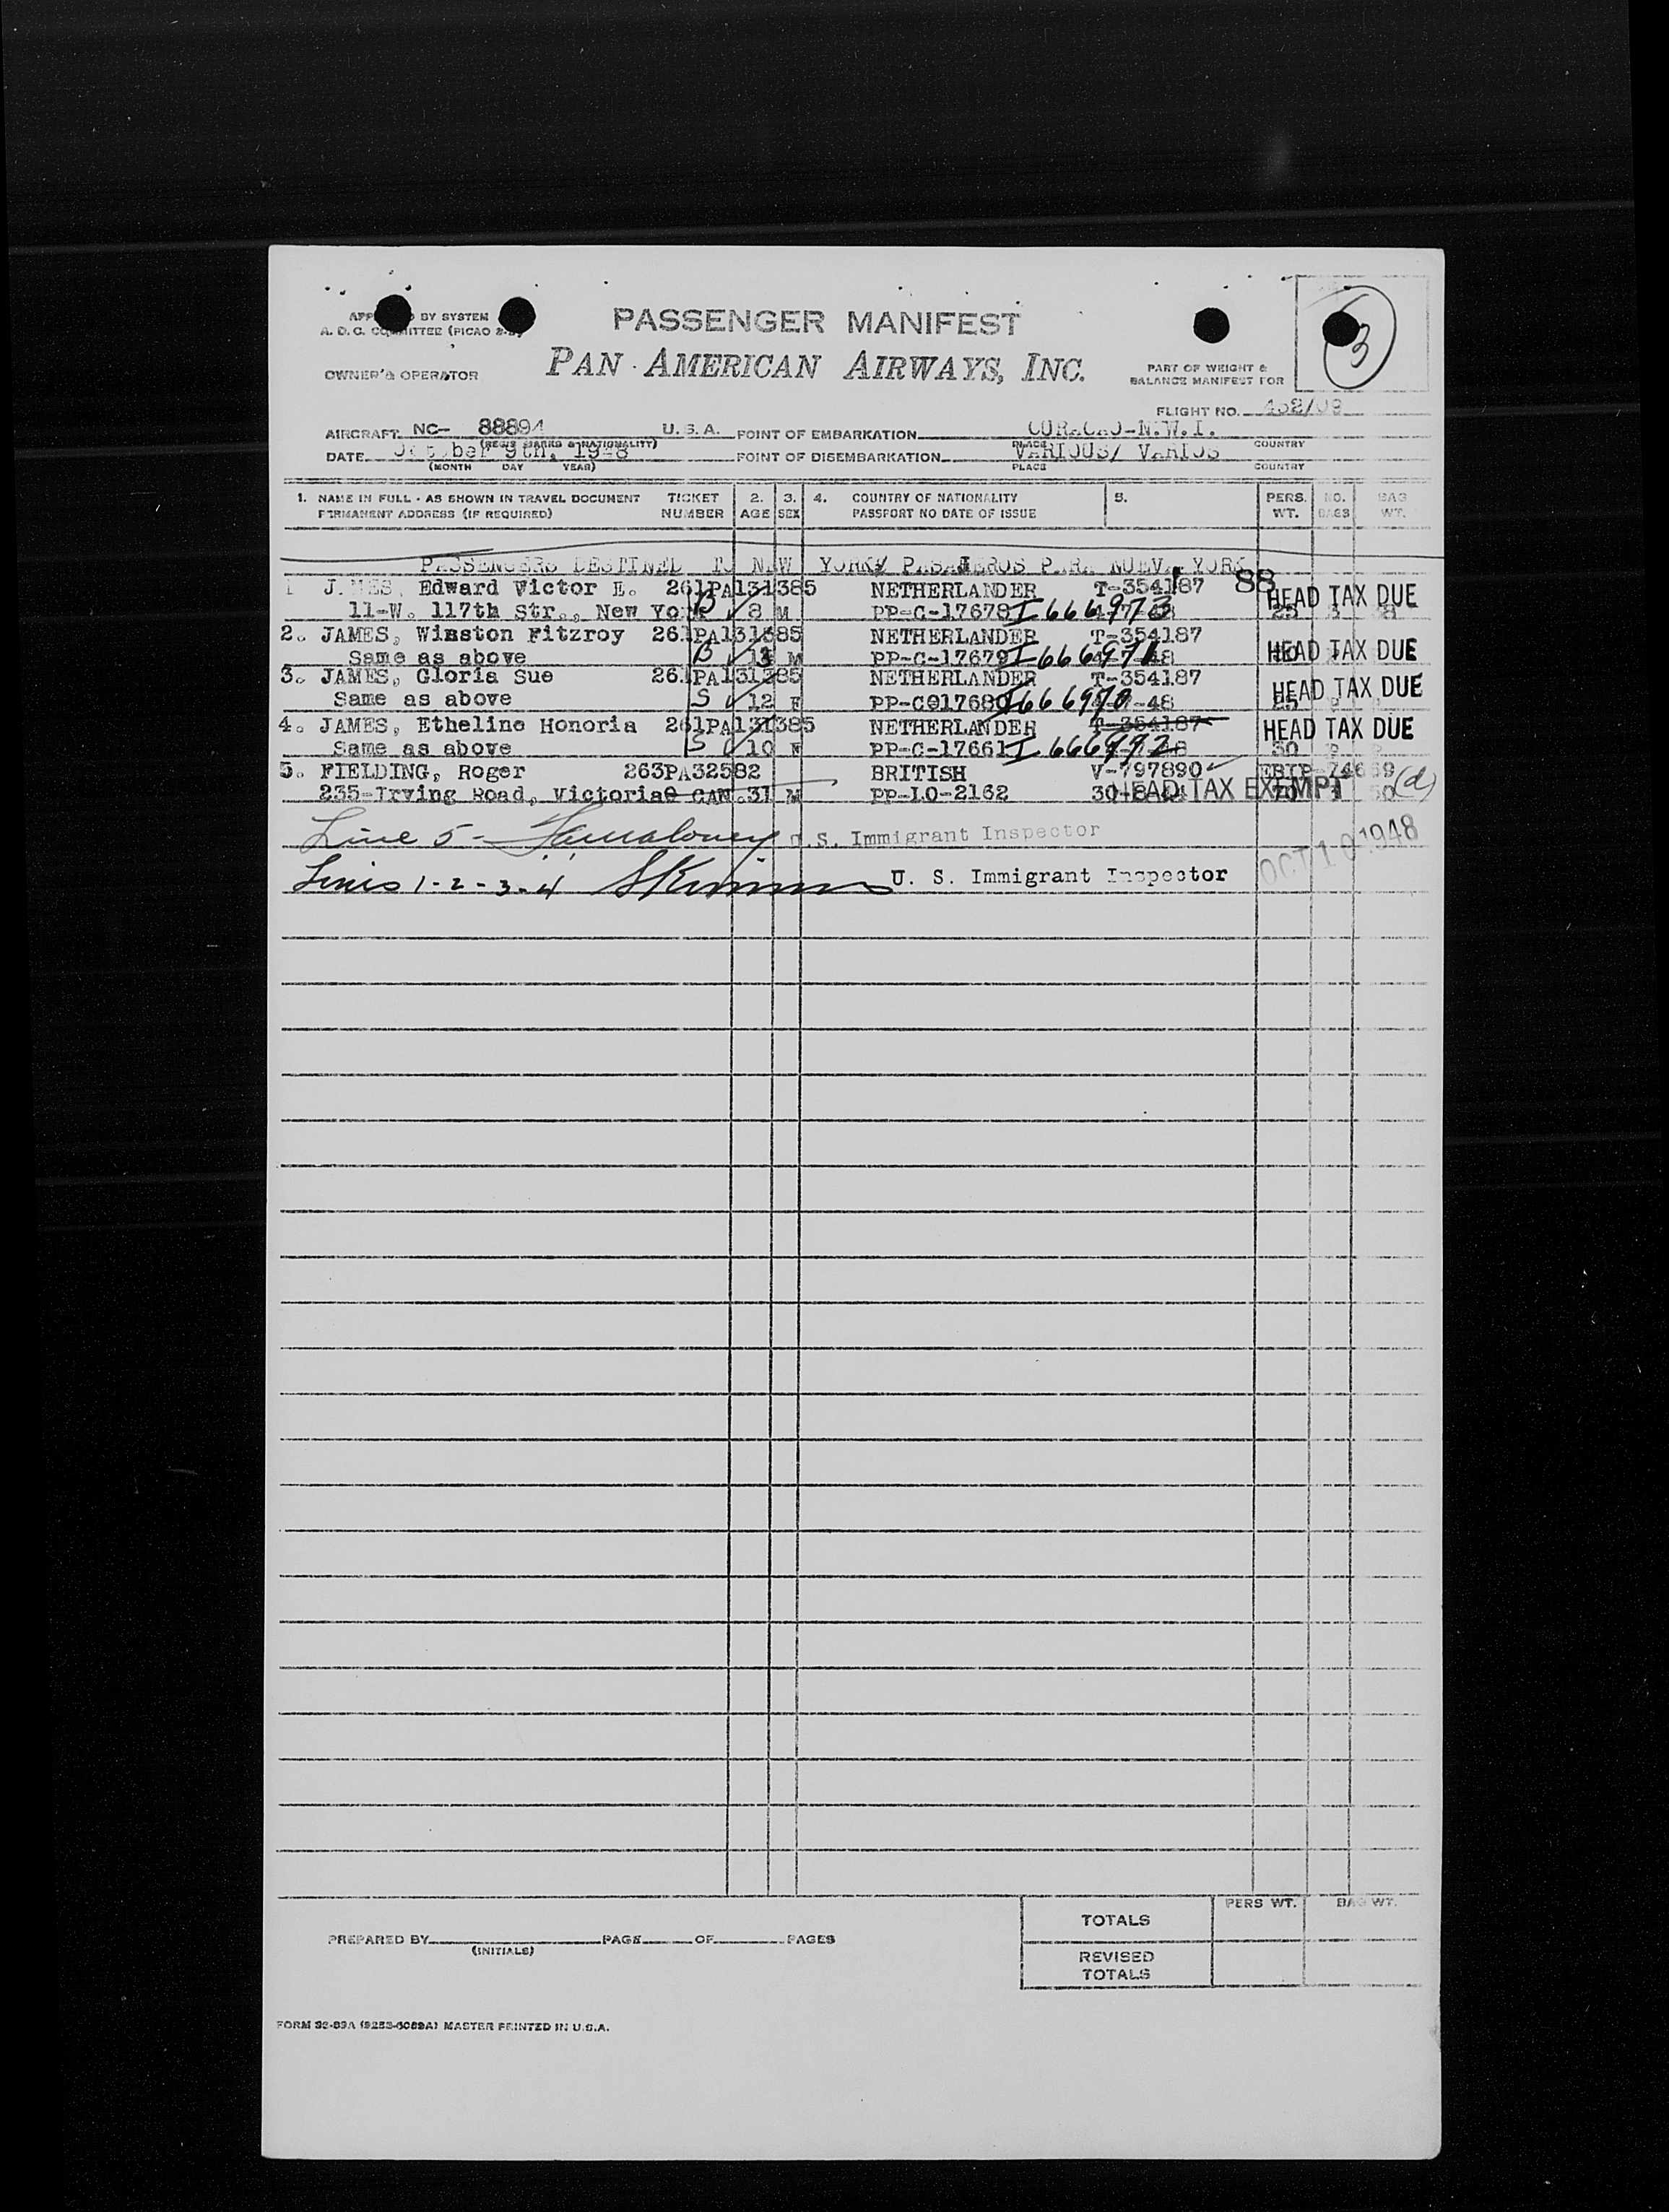 PASSENGER MANIFEST
3
BY SYSTEM
A. D. C. COMMITTEE (PICAO
PAN AMERICAN AIRWAYS, INC.
OWNER'S OPERATOR
PART OF WEIGHT &
BALANCE MANIFEST FOR
FLIGHT NO. 432/09
AIRCRAFT NC- 88894 U. S. A. POINT OF EMBARKATION CURACAO-N.W.I.
(REGIS MARKS & NATIONALITY) PLACE COUNTRY
DATE October 9th, 1948 POINT OF DISEMBARKATION VARIOUS/ VARIOS
(MONTH DAY YEAR) PLACE COUNTRY
1. NAME IN FULL - AS SHOWN IN TRAVEL DOCUMENT TICKET 2. 3. 4. COUNTRY OF NATIONALITY 5. PERS. NO. BAG
PERMANENT ADDRESS (IF REQUIRED) NUMBER AGE SEX PASSPORT NO DATE OF ISSUE WT. BAGS WT.
PASSENGERS DESTINED TO NEW YORK/ PASAJEROS PARA NUEVA YORK
1 JAMES, Edward Victor E. 261PA131385 NETHERLANDER T-354187 88 HEAD TAX DUE
11-W. 117th Str., New York B 8 M PP-C-17678 I666973
2. JAMES, Winston Fitzroy 261PA131385 NETHERLANDER T-354187 HEAD TAX DUE
Same as above B 13 M PP-C-17679 I666971
3. JAMES, Gloria Sue 261PA131385 NETHERLANDER T-354187 HEAD TAX DUE
Same as above S 12 F PP-C017680 I666970
4. JAMES, Etheline Honoria 261PA131385 NETHERLANDER T-354187 HEAD TAX DUE
Same as above S 10 F PP-C-17661 I 666972 30
5. FIELDING, Roger 263PA32582 BRITISH V-797890 EBTP-74659
235-Irving Road, Victoria CAN. 31 M PP-LO-2162 HEAD TAX EXEMPT 50 (d)
Line 5 - U.S. Immigrant Inspector
OCT 10 1948
Lines 1-2-3-4 U. S. Immigrant Inspector
PERS WT. BAG WT.
TOTALS
PREPARED BY PAGE OF PAGES
(INITIALS)
REVISED
TOTALS
FORM MASTER PRINTED IN U.S.A.